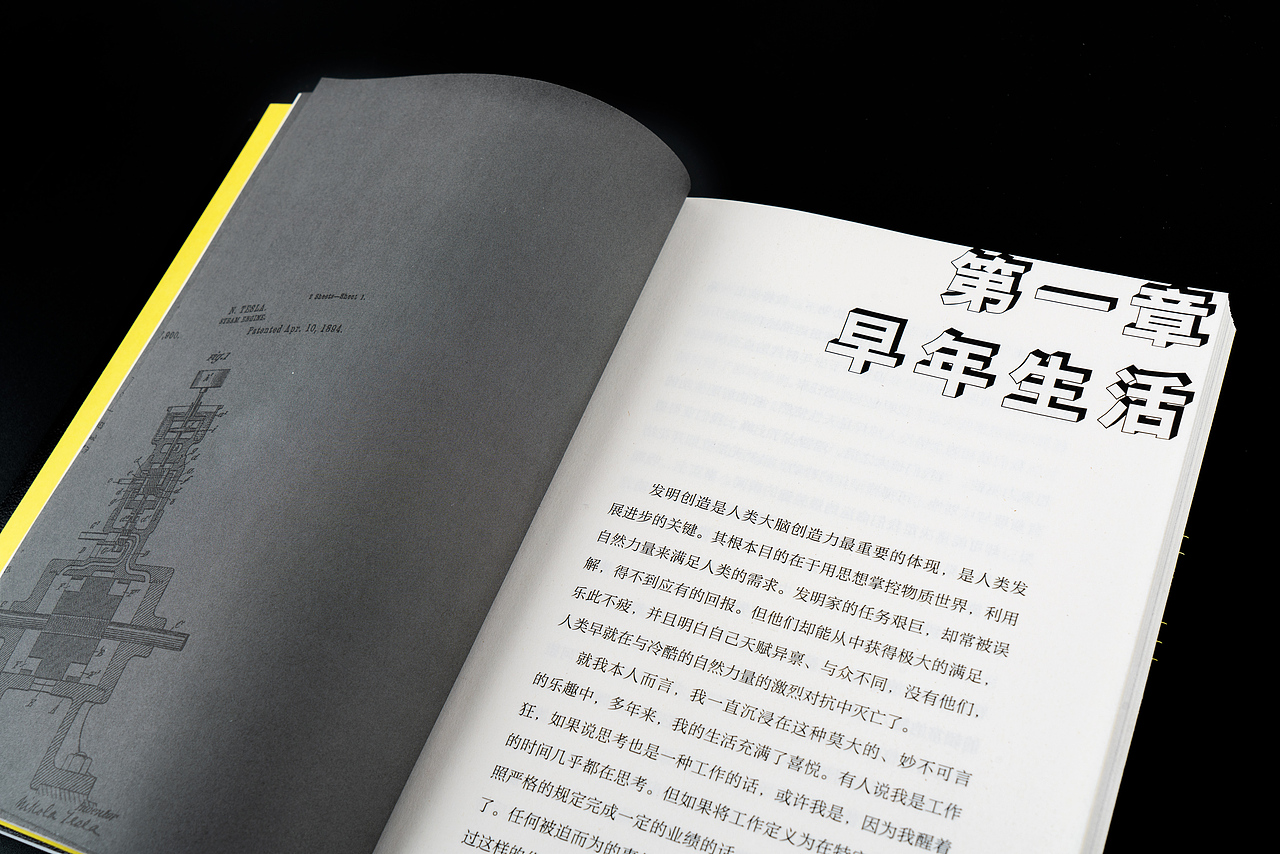 2 Sheets—Sheet 1.
N. TESLA.
STEAM ENGINE.
Patented Apr. 10, 1894.
Fig. 1
Nikola Tesla
第一章
早年生活
发明创造是人类大脑创造力最重要的体现，是人类发
展进步的关键。其根本目的在于用思想掌控物质世界，利用
自然力量来满足人类的需求。发明家的任务艰巨，却常被误
解，得不到应有的回报。但他们却能从中获得极大的满足，
乐此不疲，并且明白自己天赋异禀、与众不同，没有他们，
人类早就在与冷酷的自然力量的激烈对抗中灭亡了。
就我本人而言，我一直沉浸在这种莫大的、妙不可言
的乐趣中，多年来，我的生活充满了喜悦。有人说我是工作
狂，如果说思考也是一种工作的话，或许我是，因为我醒着
的时间几乎都在思考。但如果将工作定义为在特定
照严格的规定完成一定的业绩的话
了。任何被迫而为的事
过这样的